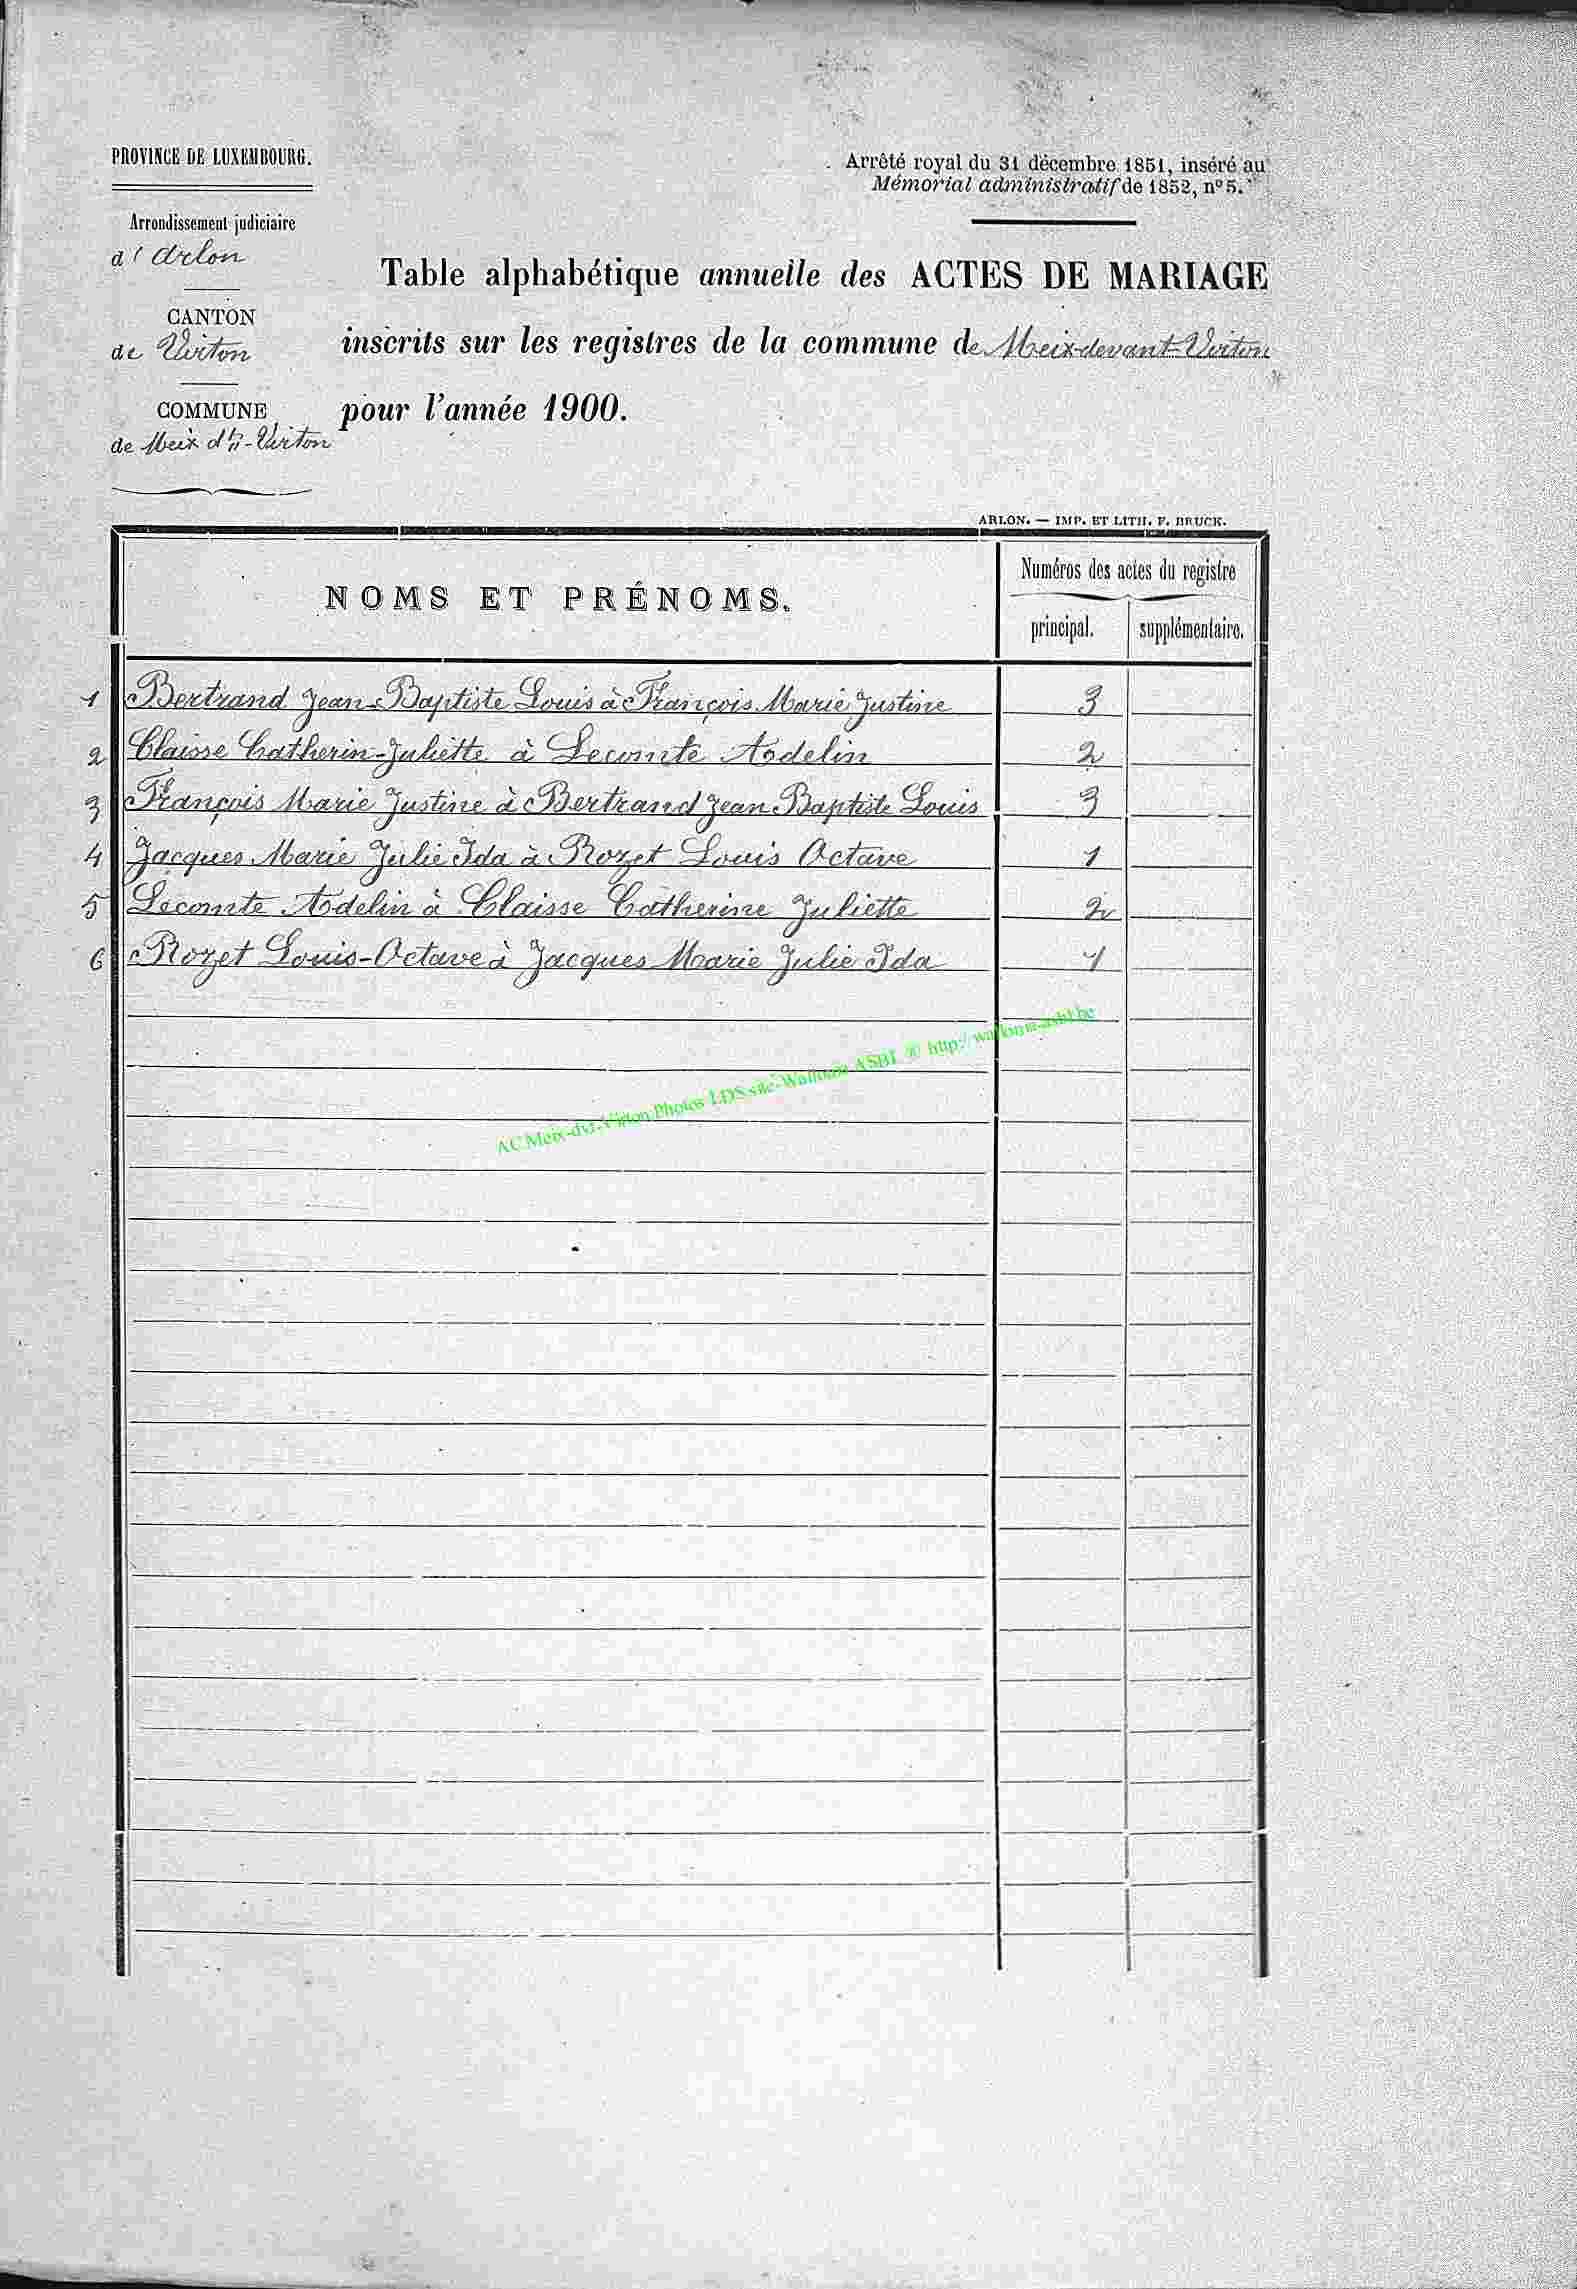 PROVINCE DE LUXEMBOURG.
Arrondissement judiciaire
d'Arlon
CANTON
de Virton
COMMUNE
de Meix dt-Virton
Arrêté royal du 31 décembre 1851, inséré au
Mémorial administratif de 1852, n° 5.
Table alphabétique annuelle des ACTES DE MARIAGE
inscrits sur les registres de la commune de Meix-devant-Virton
pour l'année 1900.
ARLON. — IMP. ET LITH. F. BRUCK.
NOMS ET PRÉNOMS.
Numéros des actes du registre
principal. supplémentaire.
1 Bertrand Jean-Baptiste Louis à François Marie Justine 3
2 Claisse Catherin-Juliette à Lecomte Adelin 2
3 François Marie Justine à Bertrand Jean Baptiste Louis 3
4 Jacques Marie Julie Ida à Rozet Louis Octave 1
5 Lecomte Adelin à Claisse Catherine Juliette 2
6 Rozet Louis-Octave à Jacques Marie Julie Ida 1
AC Meix-dvt-Virton Photos LDS site Wallonia ASBL ® http://wallonia-asbl.be